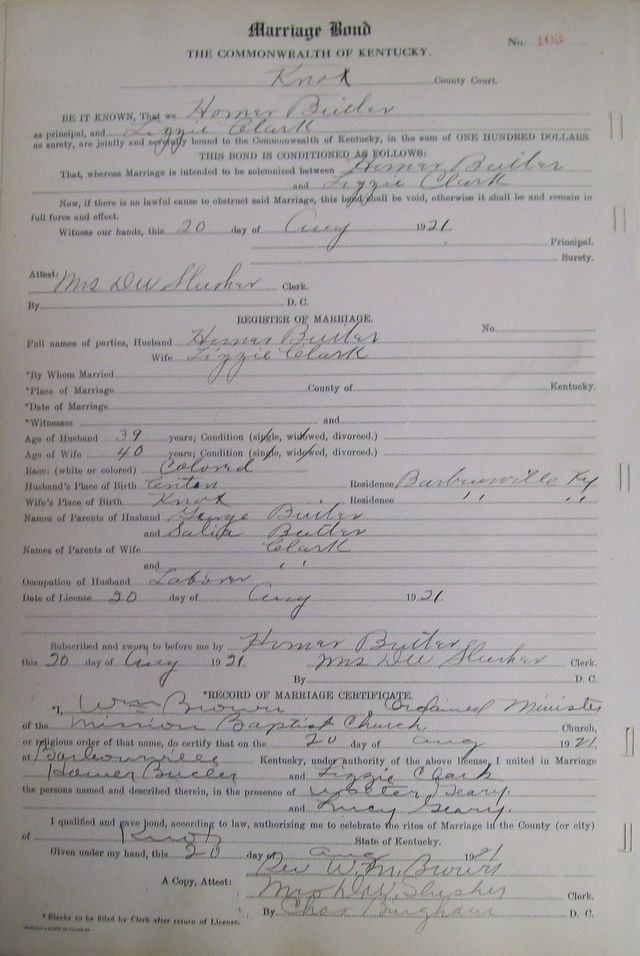 Marriage Bond
No. 103
THE COMMONWEALTH OF KENTUCKY.
Knox County Court.
BE IT KNOWN, That we Homer Butler
as principal, and Lizzie Clark
as surety, are jointly and severally bound to the Commonwealth of Kentucky, in the sum of ONE HUNDRED DOLLARS
THIS BOND IS CONDITIONED AS FOLLOWS:
That, whereas Marriage is intended to be solemnized between Homer Butler
and Lizzie Clark
Now, if there is no lawful cause to obstruct said Marriage, this bond shall be void, otherwise it shall be and remain in
full force and effect.
Witness our hands, this 20 day of Aug 1921.
Principal.
Surety.
Attest: Mrs DW Slusher Clerk.
By D. C.
REGISTER OF MARRIAGE.
No.
Full names of parties, Husband Homer Butler
Wife Lizzie Clark
*By Whom Married
*Place of Marriage County of Kentucky.
*Date of Marriage
*Witnesses and
Age of Husband 39 years; Condition (single, widowed, divorced.)
Age of Wife 40 years; Condition (single, widowed, divorced.)
Race: (white or colored) Colored
Husband's Place of Birth Residence Barbourville Ky
Wife's Place of Birth Knox Residence " "
Names of Parents of Husband George Butler
and Butler
Names of Parents of Wife Clark
and "
Occupation of Husband Laborer
Date of License 20 day of Aug 1921.
Subscribed and sworn to before me by Homer Butler
this 20 day of Aug 1921 Mrs DW Slusher Clerk.
By D. C.
*RECORD OF MARRIAGE CERTIFICATE.
*I, Wm Brown, Ordained Minister
of the Mission Baptist Church. Church,
or religious order of that name, do certify that on the 20 day of Aug 1921
at Barbourville Kentucky, under authority of the above license, I united in Marriage
Homer Butler and Lizzie Clark
the persons named and described therein, in the presence of Walter Geary.
and Lucy Geary.
I qualified and gave bond, according to law, authorizing me to celebrate the rites of Marriage in the County (or city)
of Knox State of Kentucky.
Given under my hand, this 20 day of Aug 1921
Rev W. M. Brown
A Copy, Attest: Mrs D.W. Slusher Clerk.
By Chas Bingham D. C.
*Blanks to be filled by Clerk after return of License.